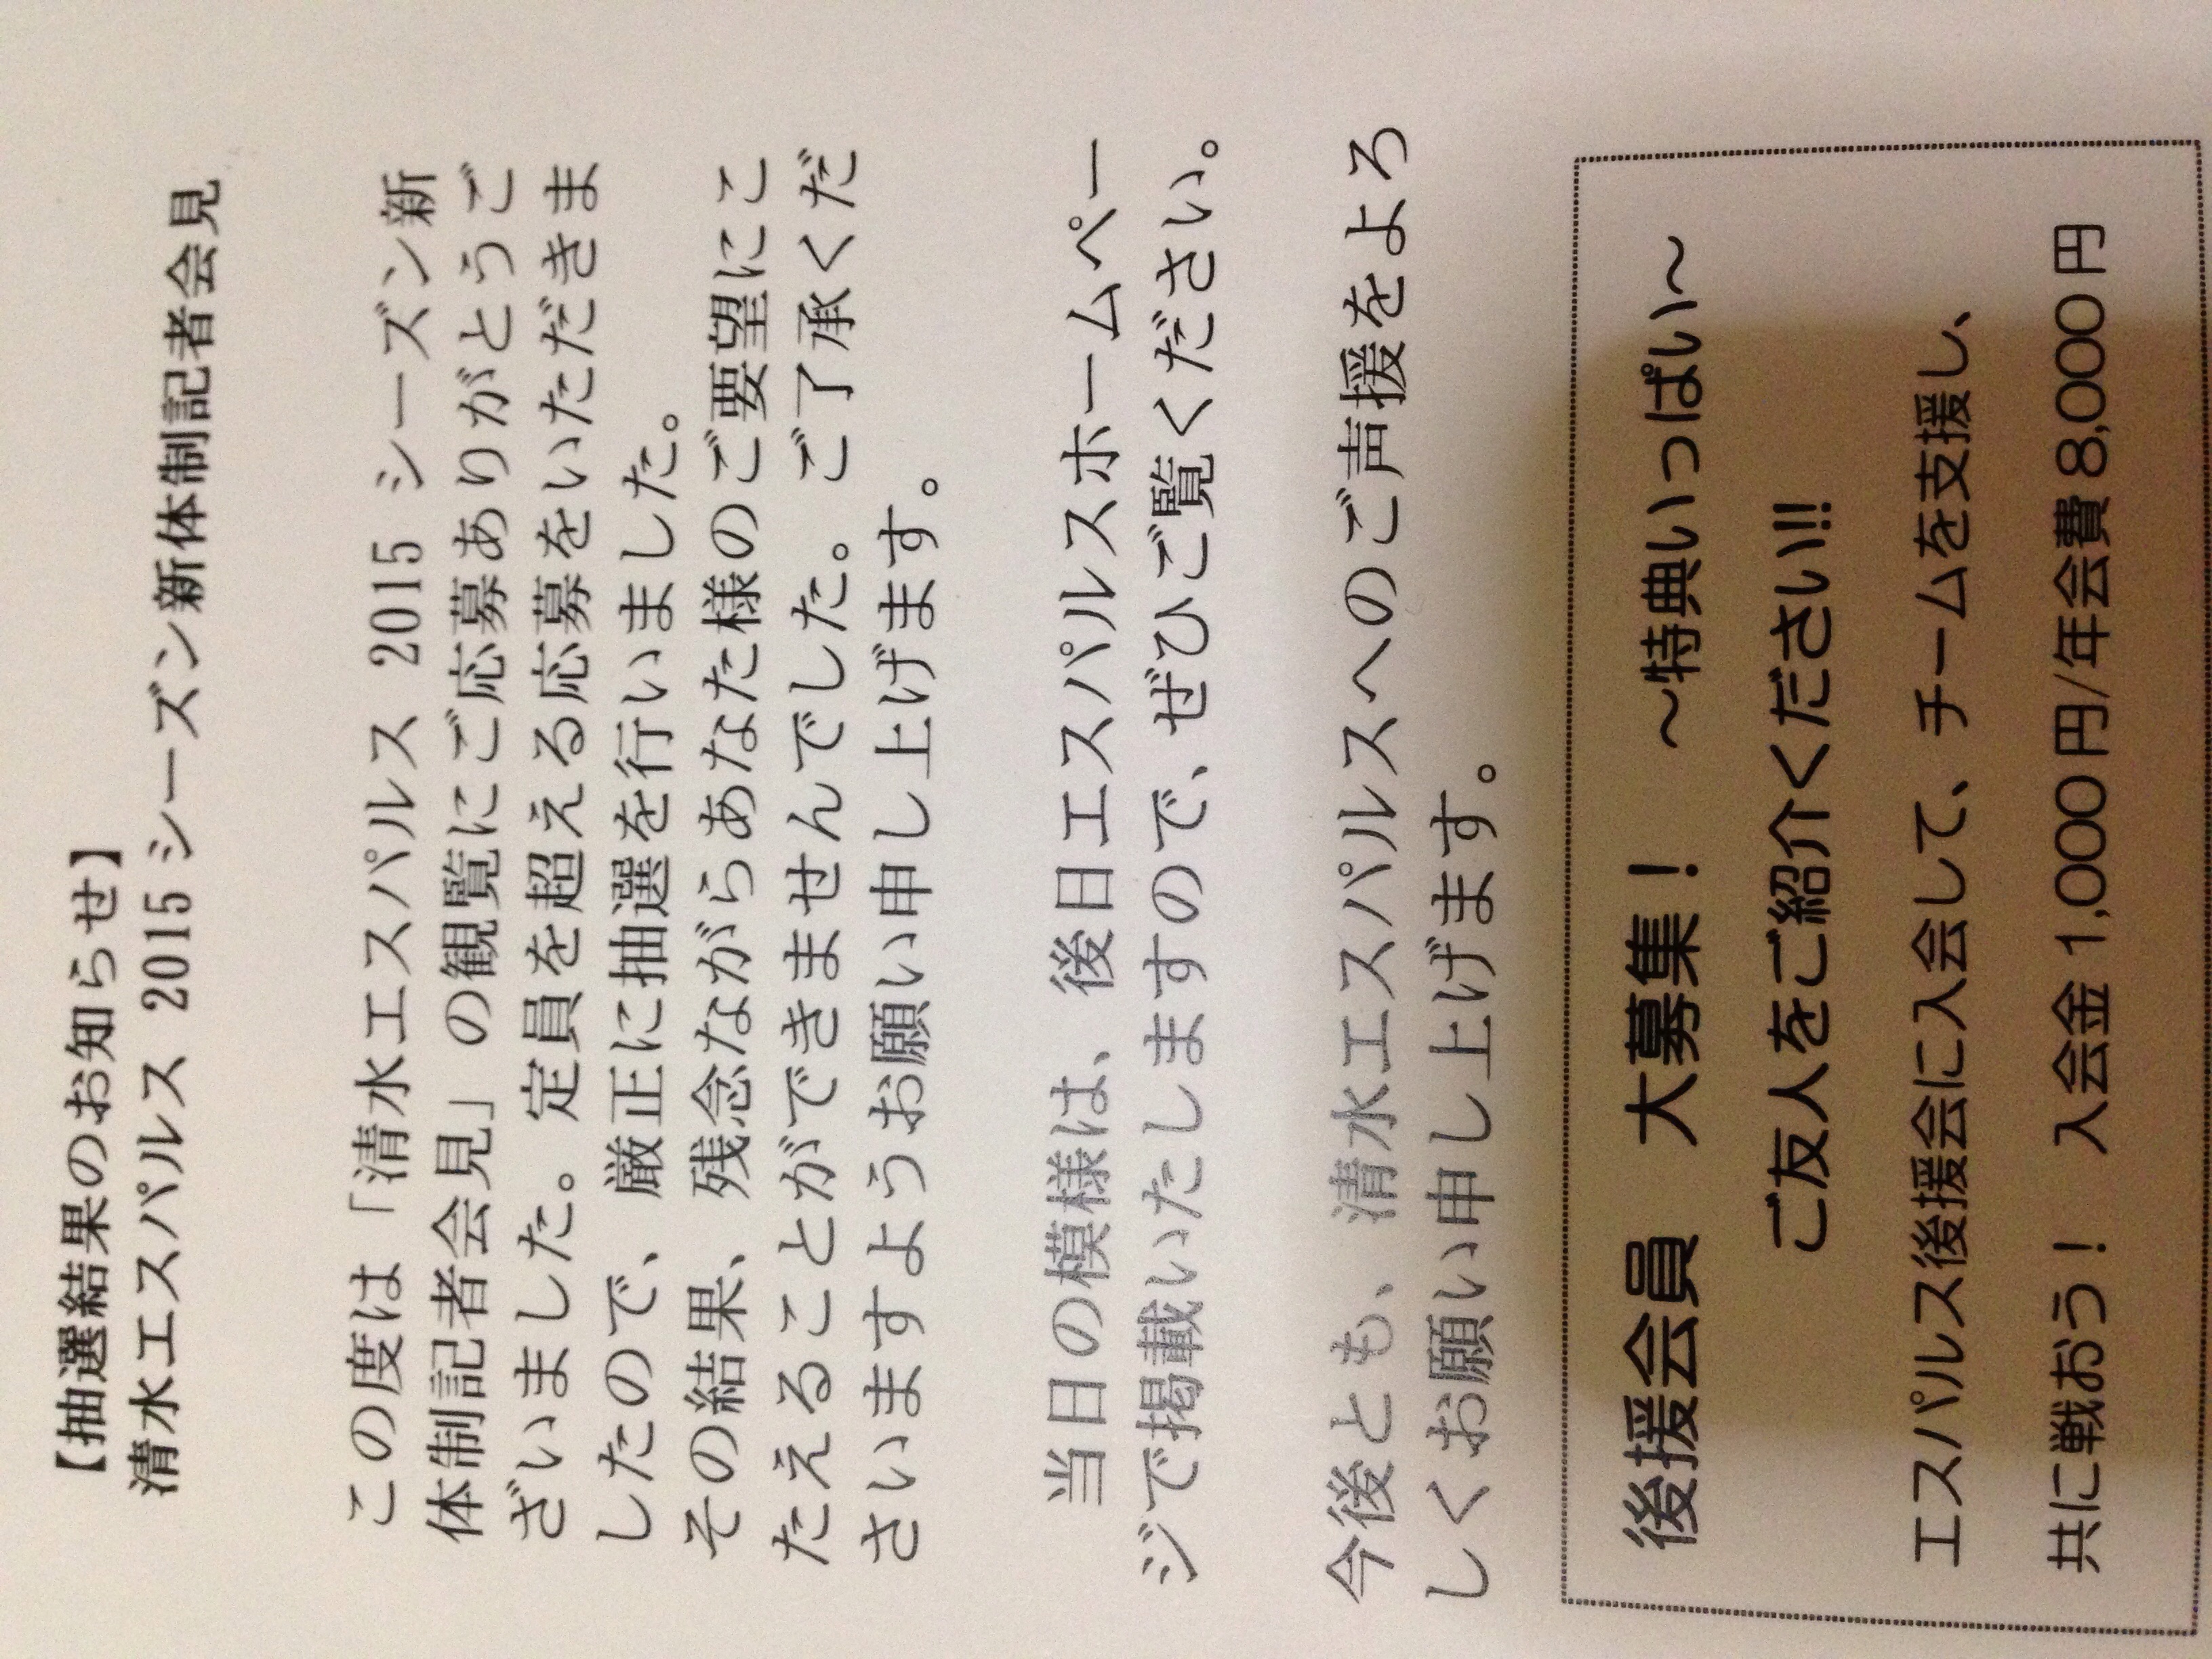 【抽選結果のお知らせ】
清水エスパルス 2015 シーズン新体制記者会見
この度は「清水エスパルス 2015 シーズン新
体制記者会見」の観覧にご応募ありがとうご
ざいました。定員を超える応募をいただきま
したので、厳正に抽選を行いました。
その結果、残念ながらあなた様のご要望にこ
たえることができませんでした。ご了承くだ
さいますようお願い申し上げます。
当日の模様は、後日エスパルスホームペー
ジで掲載いたしますので、ぜひご覧ください。
今後とも、清水エスパルスへのご声援をよろ
しくお願い申し上げます。
後援会員 大募集！ ～特典いっぱい～
ご友人をご紹介ください!!
エスパルス後援会に入会して、チームを支援し、
共に戦おう！ 入会金 1,000 円/年会費 8,000 円